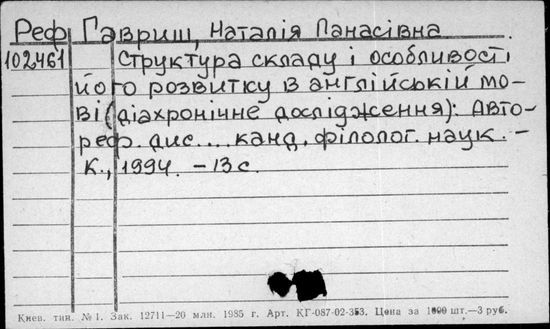 Реф Гавриш, Наталія Панасівна
102461 Структура складу і особливості
його розвитку в англійській мо-
ві (діахронічне дослідження): Авто-
реф. дис.... канд. філолог. наук. –
К., 1994. – 13 с.
Киев. тип. № 1. Зак. 12711—20 млн. 1985 г. Арт. КГ-087-02-353. Цена за 1000 шт.—3 руб.